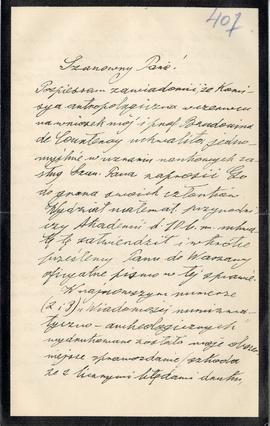 407
Szanowny Panie!
Pospieszam zawiadomić, że Komi-
sya antropologiczna w czerwcu
na wniosek mój i prof. Baudouina
de Courtenay uchwaliła jedno-
myślnie w uznaniu naukowych za-
sług Szan. Pana zaprosić Go
do grona swoich członków
Wydział matemat. przyrodni-
czy Akademii d. 10 b. m. uchwa-
łę tę zatwierdził i wkrótce
prześlemy Panu do Warszawy
oficyalne pismo w tej sprawie.
W najnowszym numerze
(2 i 3) „Wiadomości numizma-
tyczno-archeologicznych"
wydrukowane zostało moje obszer-
niejsze sprawozdanie, szkoda
że z licznymi błędami druku,